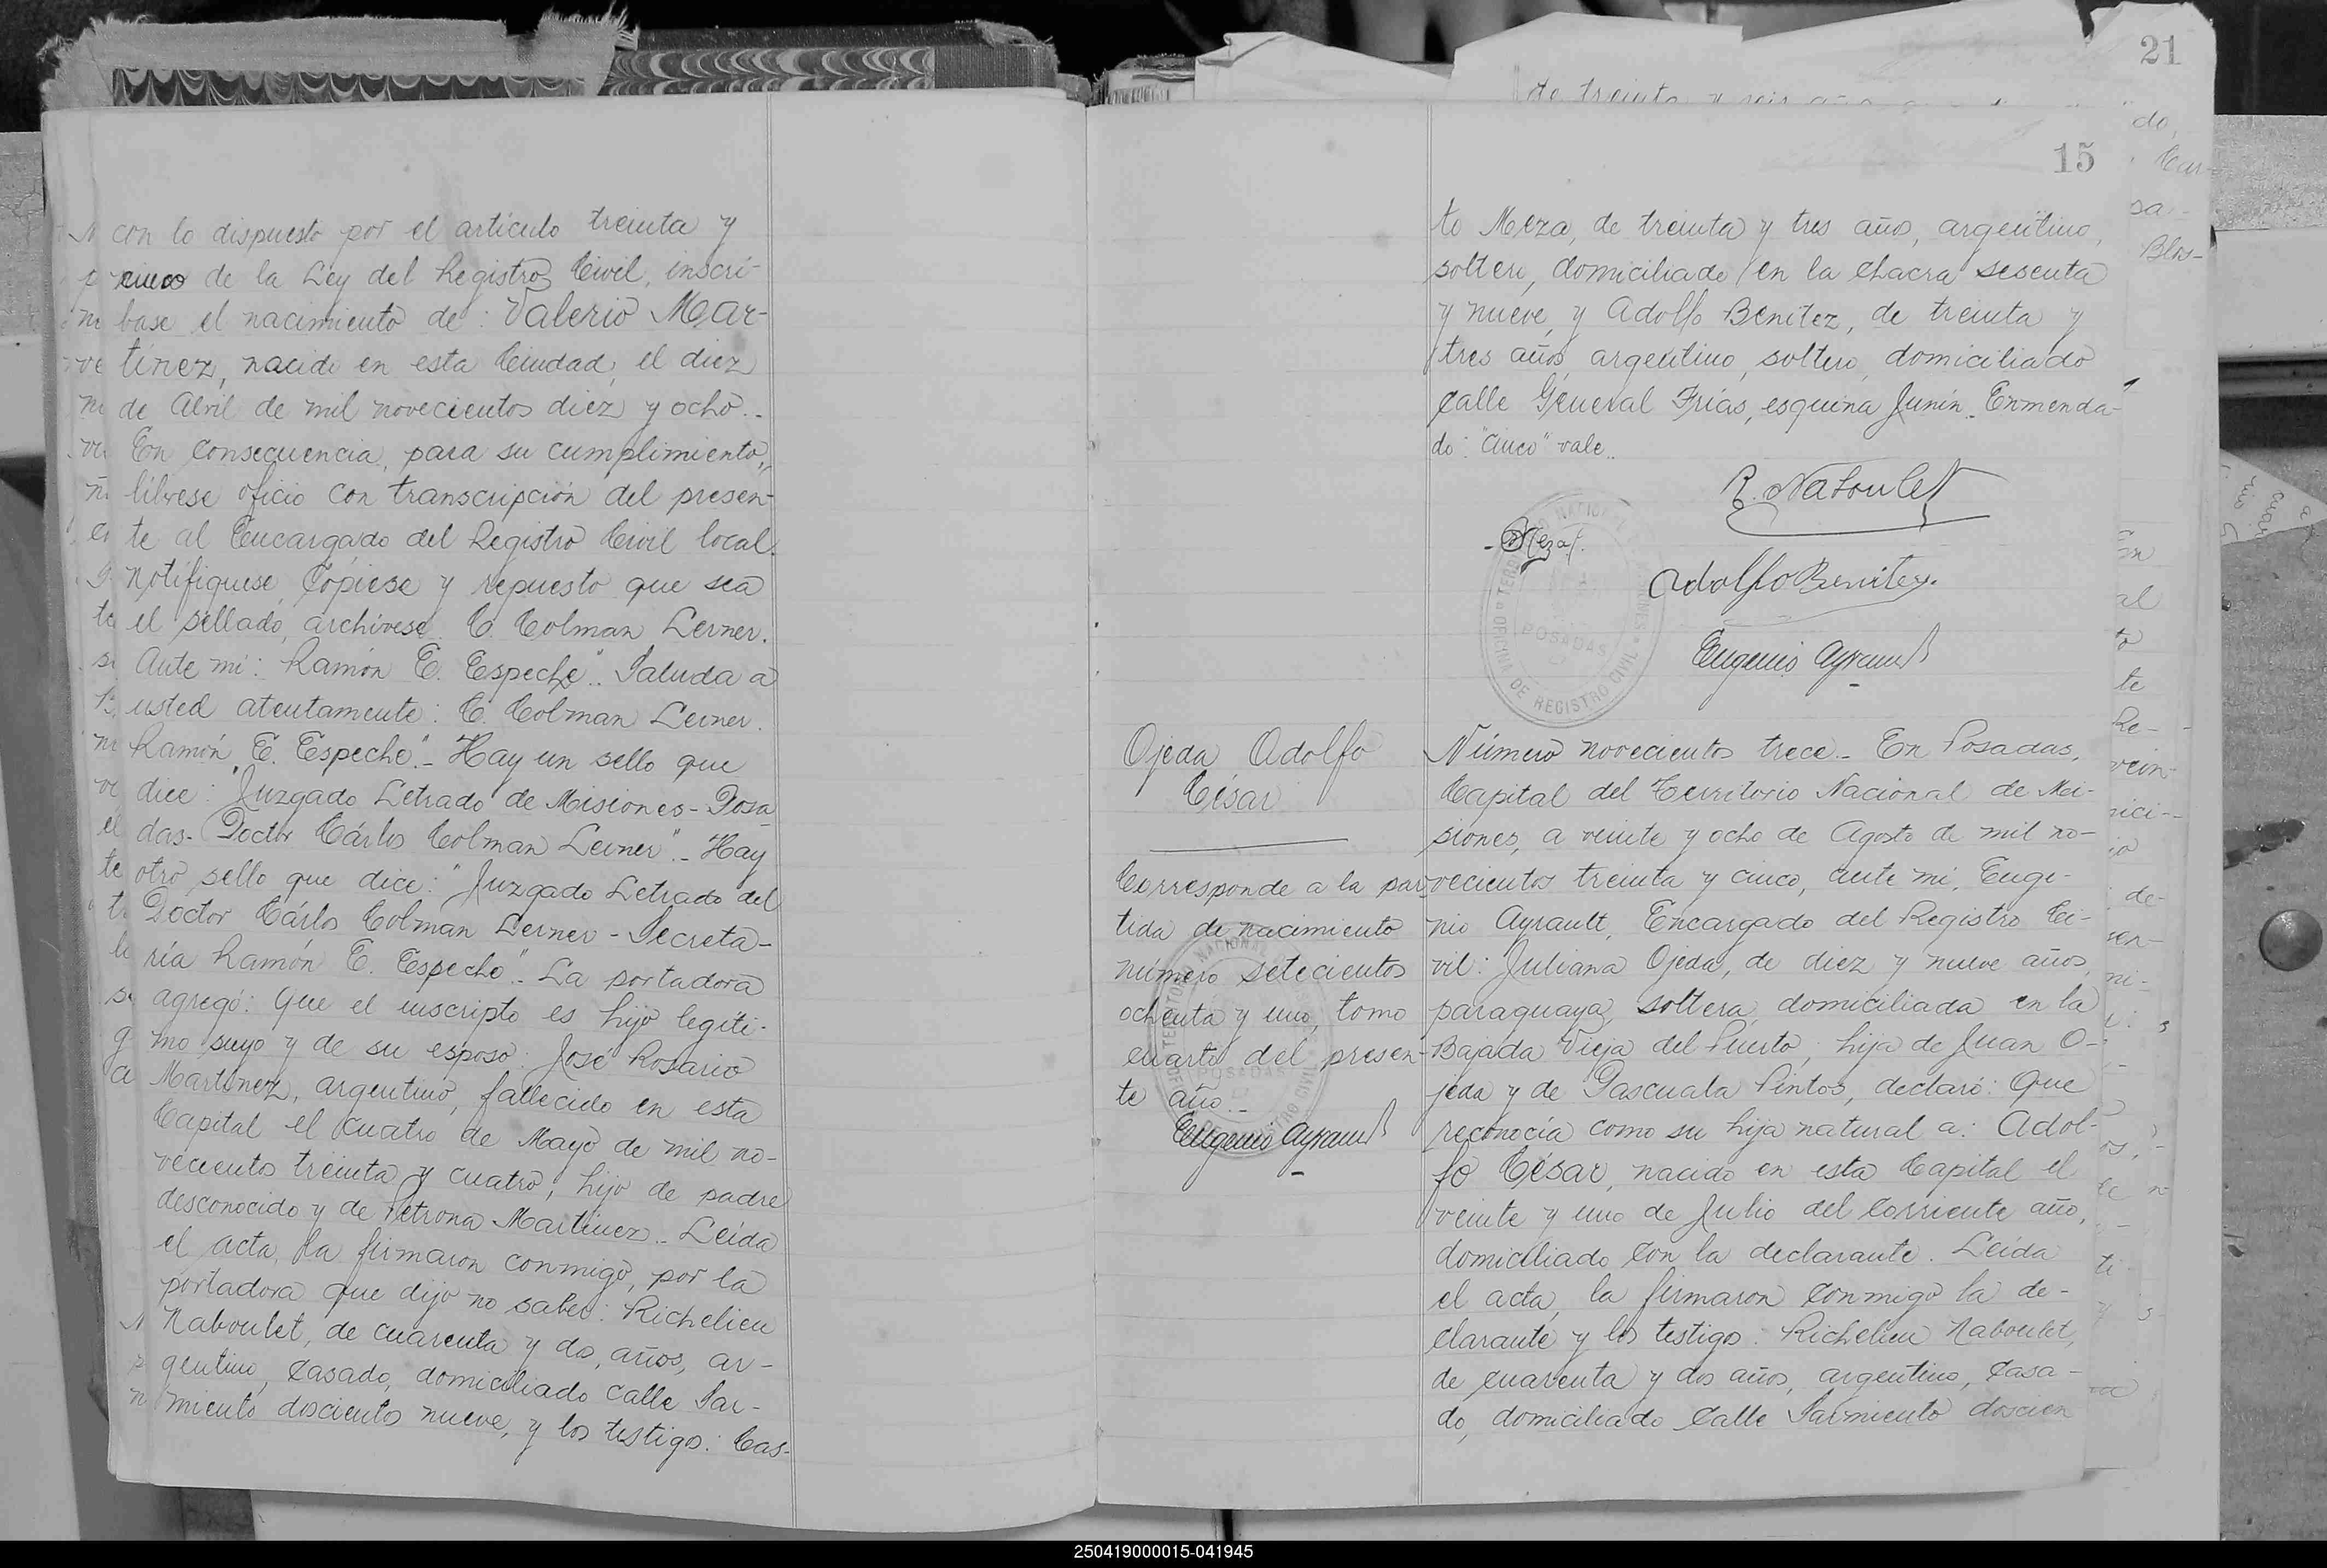 con lo dispuesto por el artículo treinta y
cinco de la Ley del Registro Civil, inscrí-
base el nacimiento de: Valerio Mar-
tínez, nacido en esta Ciudad, el diez
de Abril de mil novecientos diez y ocho.-
En consecuencia, para su cumplimiento,
líbrese oficio con transcripción del presen-
te al Encargado del Registro Civil local.
Notifíquese, Cópiese y repuesto que sea
el sellado, archívese. C. Colman Lerner.
Ante mí: Ramón E. Espeche". Saluda a
usted atentamente: C. Colman Lerner.
Ramón E. Espeche".- Hay un sello que
dice: "Juzgado Letrado de Misiones - Posa
das - Doctor Cárlos Colman Lerner".- Hay
otro sello que dice: "Juzgado Letrado del
Doctor Cárlos Colman Lerner - Secreta-
ría Ramón E. Espeche".- La portadora
agregó: Que el inscripto es hijo legíti-
mo suyo y de su esposo: José Rosario
Martínez, argentino, fallecido en esta
Capital el cuatro de Mayo de mil no-
vecientos treinta y cuatro, hijo de padre
desconocido y de Petrona Martinez.- Leída
el acta, la firmaron conmigo, por la
portadora que dijo no saber: Richelieu
Naboulet, de cuarenta y dos años, ar-
gentino, casado, domiciliado calle Sar-
miento doscientos nueve, y los testigos: Cas-
21
15
to Meza, de treinta y tres años, argentino,
soltero, domiciliado en la chacra sesenta
y nueve, y Adolfo Benítez, de treinta y
tres años, argentino, soltero, domiciliado
calle General Frías, esquina Junín. Enmenda-
do: "cinco" vale.
R. Naboulet
Meza
Adolfo Benitez.
Eugenio Ayrault
POSADAS
REGISTRO CIVIL
Ojeda Adolfo
César
Corresponde a la par-
tida de nacimiento
número setecientos
ochenta y uno, tomo
cuarto del presen-
te año.-
Eugenio Ayrault
Número novecientos trece.- En Posadas,
Capital del Territorio Nacional de Mi-
siones, a veinte y ocho de Agosto de mil no-
vecientos treinta y cinco, ante mí, Euge-
nio Ayrault, Encargado del Registro Ci-
vil: Juliana Ojeda, de diez y nueve años,
paraguaya, soltera, domiciliada en la
Bajada Vieja del Puerto, hija de Juan O-
jeda y de Pascuala Pintos, declaró: Que
reconocía como su hijo natural a: Adol-
fo César, nacido en esta Capital el
veinte y uno de Julio del corriente año,
domiciliado con la declarante. Leída
el acta, la firmaron conmigo la de-
clarante y los testigos: Richelieu Naboulet,
de cuarenta y dos años, argentino, casa-
do, domiciliado calle Sarmiento doscien
250419000015-041945